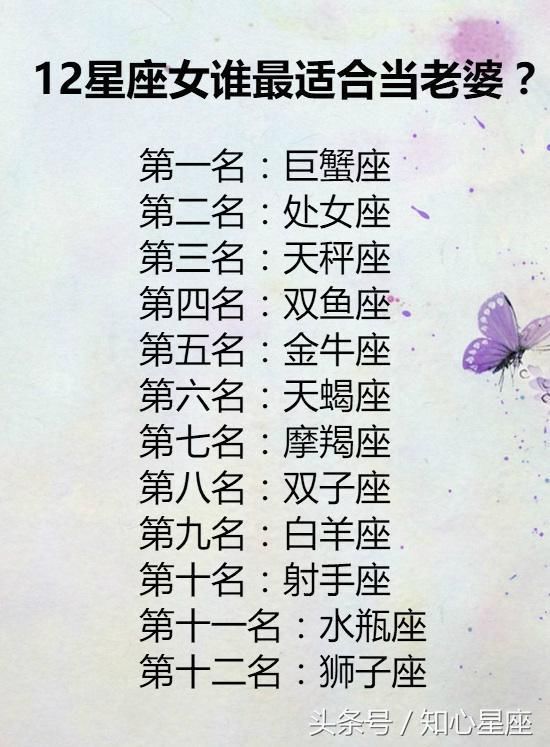 12星座女谁最适合当老婆？
第一名：巨蟹座
第二名：处女座
第三名：天秤座
第四名：双鱼座
第五名：金牛座
第六名：天蝎座
第七名：摩羯座
第八名：双子座
第九名：白羊座
第十名：射手座
第十一名：水瓶座
第十二名：狮子座
头条号 / 知心星座